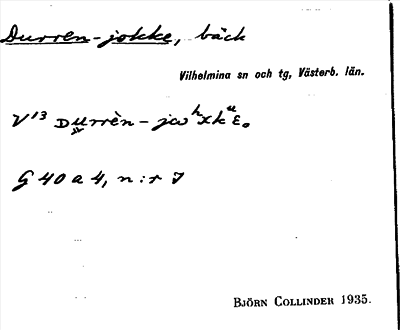 Durren-jokke, bäck
Vilhelmina sn och tg, Västerb. län.
V13
G 40 a 4, n:r
BJÖRN COLLINDER 1935.